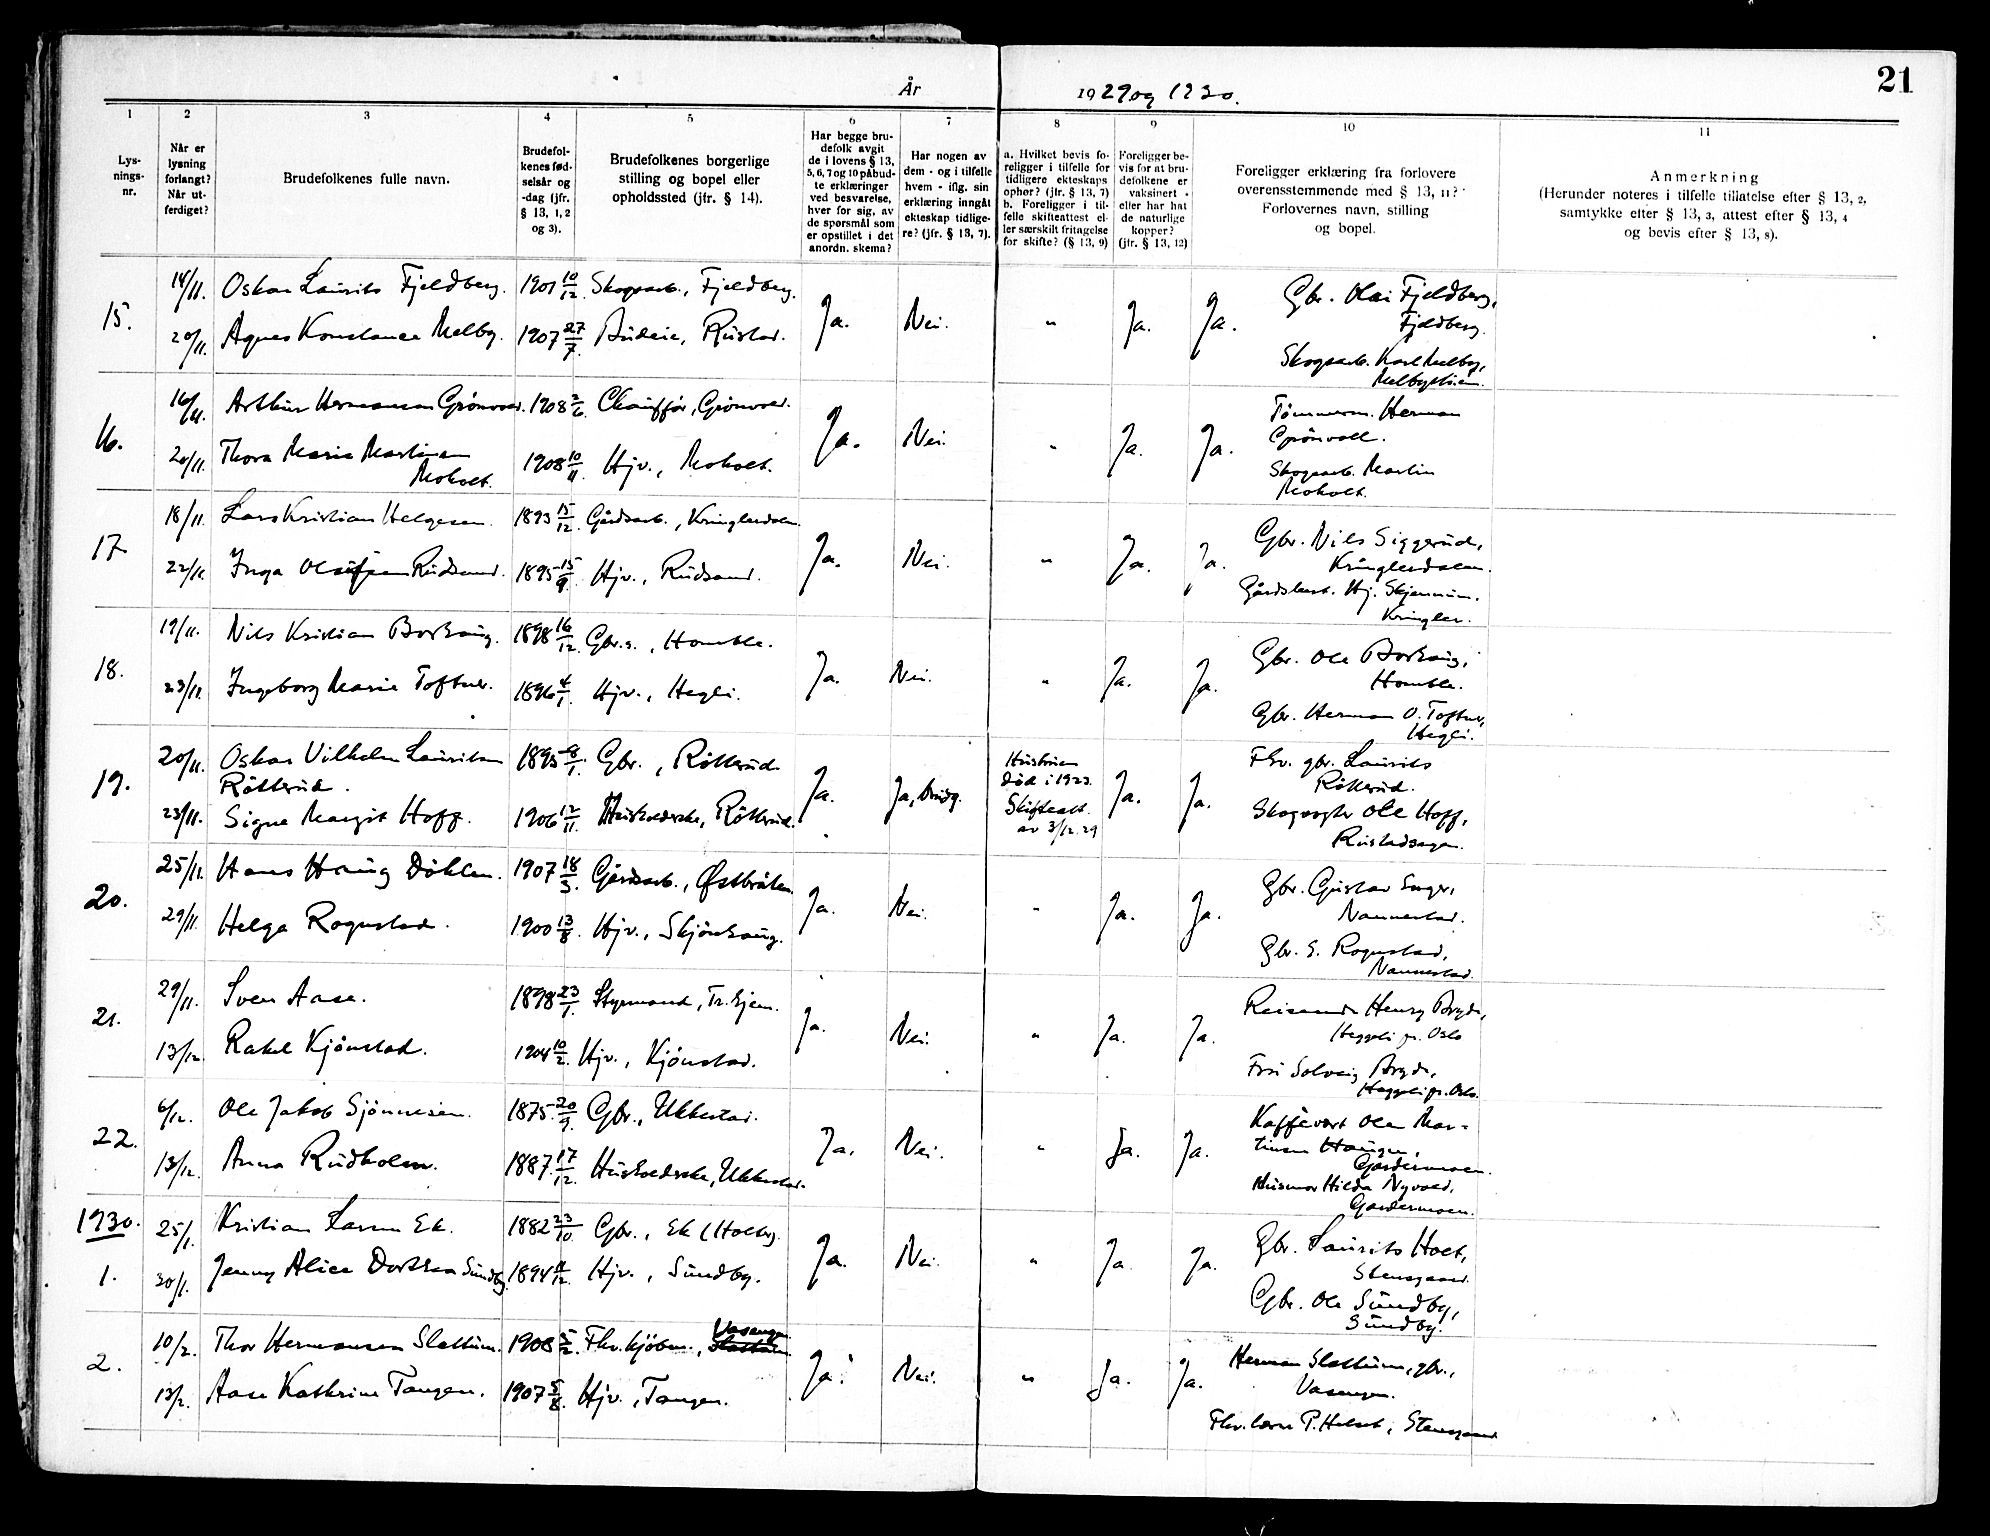 21
År 1929 og 1930.
1 2 3 4 5 6 7 8 9 10 11
Lys-
nings-
nr.
Når er
lysning
forlangt?
Når ut-
ferdiget?
Brudefolkenes fulle navn.
Brudefol-
kenes fød-
selsår og
-dag (jfr.
§ 13, 1, 2
og 3).
Brudefolkenes borgerlige
stilling og bopel eller
opholdssted (jfr. § 14).
Har begge bru-
defolk avgit
de i lovens § 13,
5, 6, 7 og 10 påbud-
te erklæringer
ved besvarelse,
hver for sig, av
de spørsmål som
er opstillet i det
anordn. skema?
Har nogen av
dem - og i tilfelle
hvem - iflg. sin
erklæring inngåt
ekteskap tidlige-
re? (jfr. § 13, 7).
a. Hvilket bevis fo-
religger i tilfelle for
tidligere ekteskaps
ophør? (jfr. § 13, 7)
b. Foreligger i til-
felle skifteattest el-
ler særskilt fritagelse
for skifte? (§ 13, 9)
Foreligger be-
vis for at bru-
defolkene er
vaksinert -
eller har hat
de naturlige
kopper?
(jfr. § 13, 12)
Foreligger erklæring fra forlovere
overensstemmende med § 13, 11?
Forlovernes navn, stilling
og bopel.
Anmerkning
(Herunder noteres i tilfelle tillatelse efter § 13, 2,
samtykke efter § 13, 3, attest efter § 13, 4
og bevis efter § 13, 8).
15.
14/11. Oskar Laurits Fjeldberg. 1901 10/12 Skogsarb., Fjeldberg.
20/11. Agnes Konstance Melby. 1907 27/7. Budeie, Rustad.
Ja. Nei. " Ja. Ja.
Gbr. Olai Fjeldberg,
Fjeldberg.
Skogsarb. Karl Melby,
16.
16/11. Arthur Hermansen Grönvold. 1908 2/6. Chauffør, Grönvold.
20/11. Thora Marie Martinsen
Moholt. 1908 10/11 Hjv., Moholt.
Ja. Nei. " Ja. Ja.
Tömmerm. Herman
Grönvoll.
Skogsarb. Martin
Moholt.
17.
18/11. Lars Kristian Helgesen. 1893 15/12. Gårdsarb., Kringlerdalen.
22/11. Inga Rudsand. 1895 15/9. Hjv., Rudsand.
Ja. Nei. " Ja. Ja.
Gbr. Nils Siggerud,
Kringlerdalen.
Kringler.
18.
19/11. Nils Kristian Borhaug. 1898 16/12. Gbr.s., Homble.
23/11. Ingeborg Marie Toftner. 1896 4/1 Hjv., Hegli.
Ja. Nei. " Ja. Ja.
Gbr. Ole Borhaug,
Homble.
Gbr. Herman O. Toftner,
Hegli.
19.
20/11. Oskar Vilhelm Lauritsen
Rötterud. 1895 /1. Gbr., Rötterud.
23/11. Signe Margit Hoff. 1906 12/11. Husholderske, Rötterud.
Ja. Ja, brudg.
Hustruen
död i 1923.
Skifteatt.
av 3/12.29
Ja. Ja.
Fhv. gbr. Laurits
Rötterud.
Skogvogter Ole Hoff,
Rustadsagen.
20.
25/11. Hans Haug Döhlen. 1907 18/3. Gårdsarb., Østbråten.
29/11. Helga Rognstad. 1900 13/8. Hjv., Skjönhaug.
Ja. Nei. " Ja. Ja.
Gbr. Gustav Enger,
Nannestad.
Gbr. E. Rognstad,
Nannestad.
21.
29/11. Sven Aase. 1898 23/1. Styrmand, Tr.hjem.
13/12 Rakel Kjönstad. 1904 10/2. Hjv., Kjönstad.
Ja. Nei. " Ja. Ja.
Reisende Henry Bryde,
Heggeli pr. Oslo
Fru Solveig Bryde,
Heggeli pr. Oslo.
22.
6/12. Ole Jakob Sjönnesen. 1875. 20/9. Gbr., Ukkestad.
13/12. Anna Rudholm. 1887. 17/12. Husholderske, Ukkestad.
Ja. Nei. " Ja. Ja.
Kaffevert Olen Mar-
tinsen Haugen,
Gardermoen.
Husmor Hilda Nyvold,
Gardermoen.
1930.
1.
25/1. Kristian Larsen Ek. 1882 23/10. Gbr., Ek (Holter).
30/1. Jenny Alice Dorthea Sundby. 1894 /12. Hjv., Sundby.
Ja. Nei. " Ja. Ja.
Gbr. Laurits Holt,
Stensgaard.
Gbr. Ole Sundby,
Sundby.
2.
10/2. Thor Hermansen Slattum. 1908 5/2. Fhv. kjöbm., Vasengen
Slattum
13/2. Aase Kathrine Tangen. 1907 5/8. Hjv., Tangen.
Ja. Nei. " Ja. Ja.
Herman Slattum, gbr.,
Vasengen.
Fhv. lærer P. Helset, Stensgaard